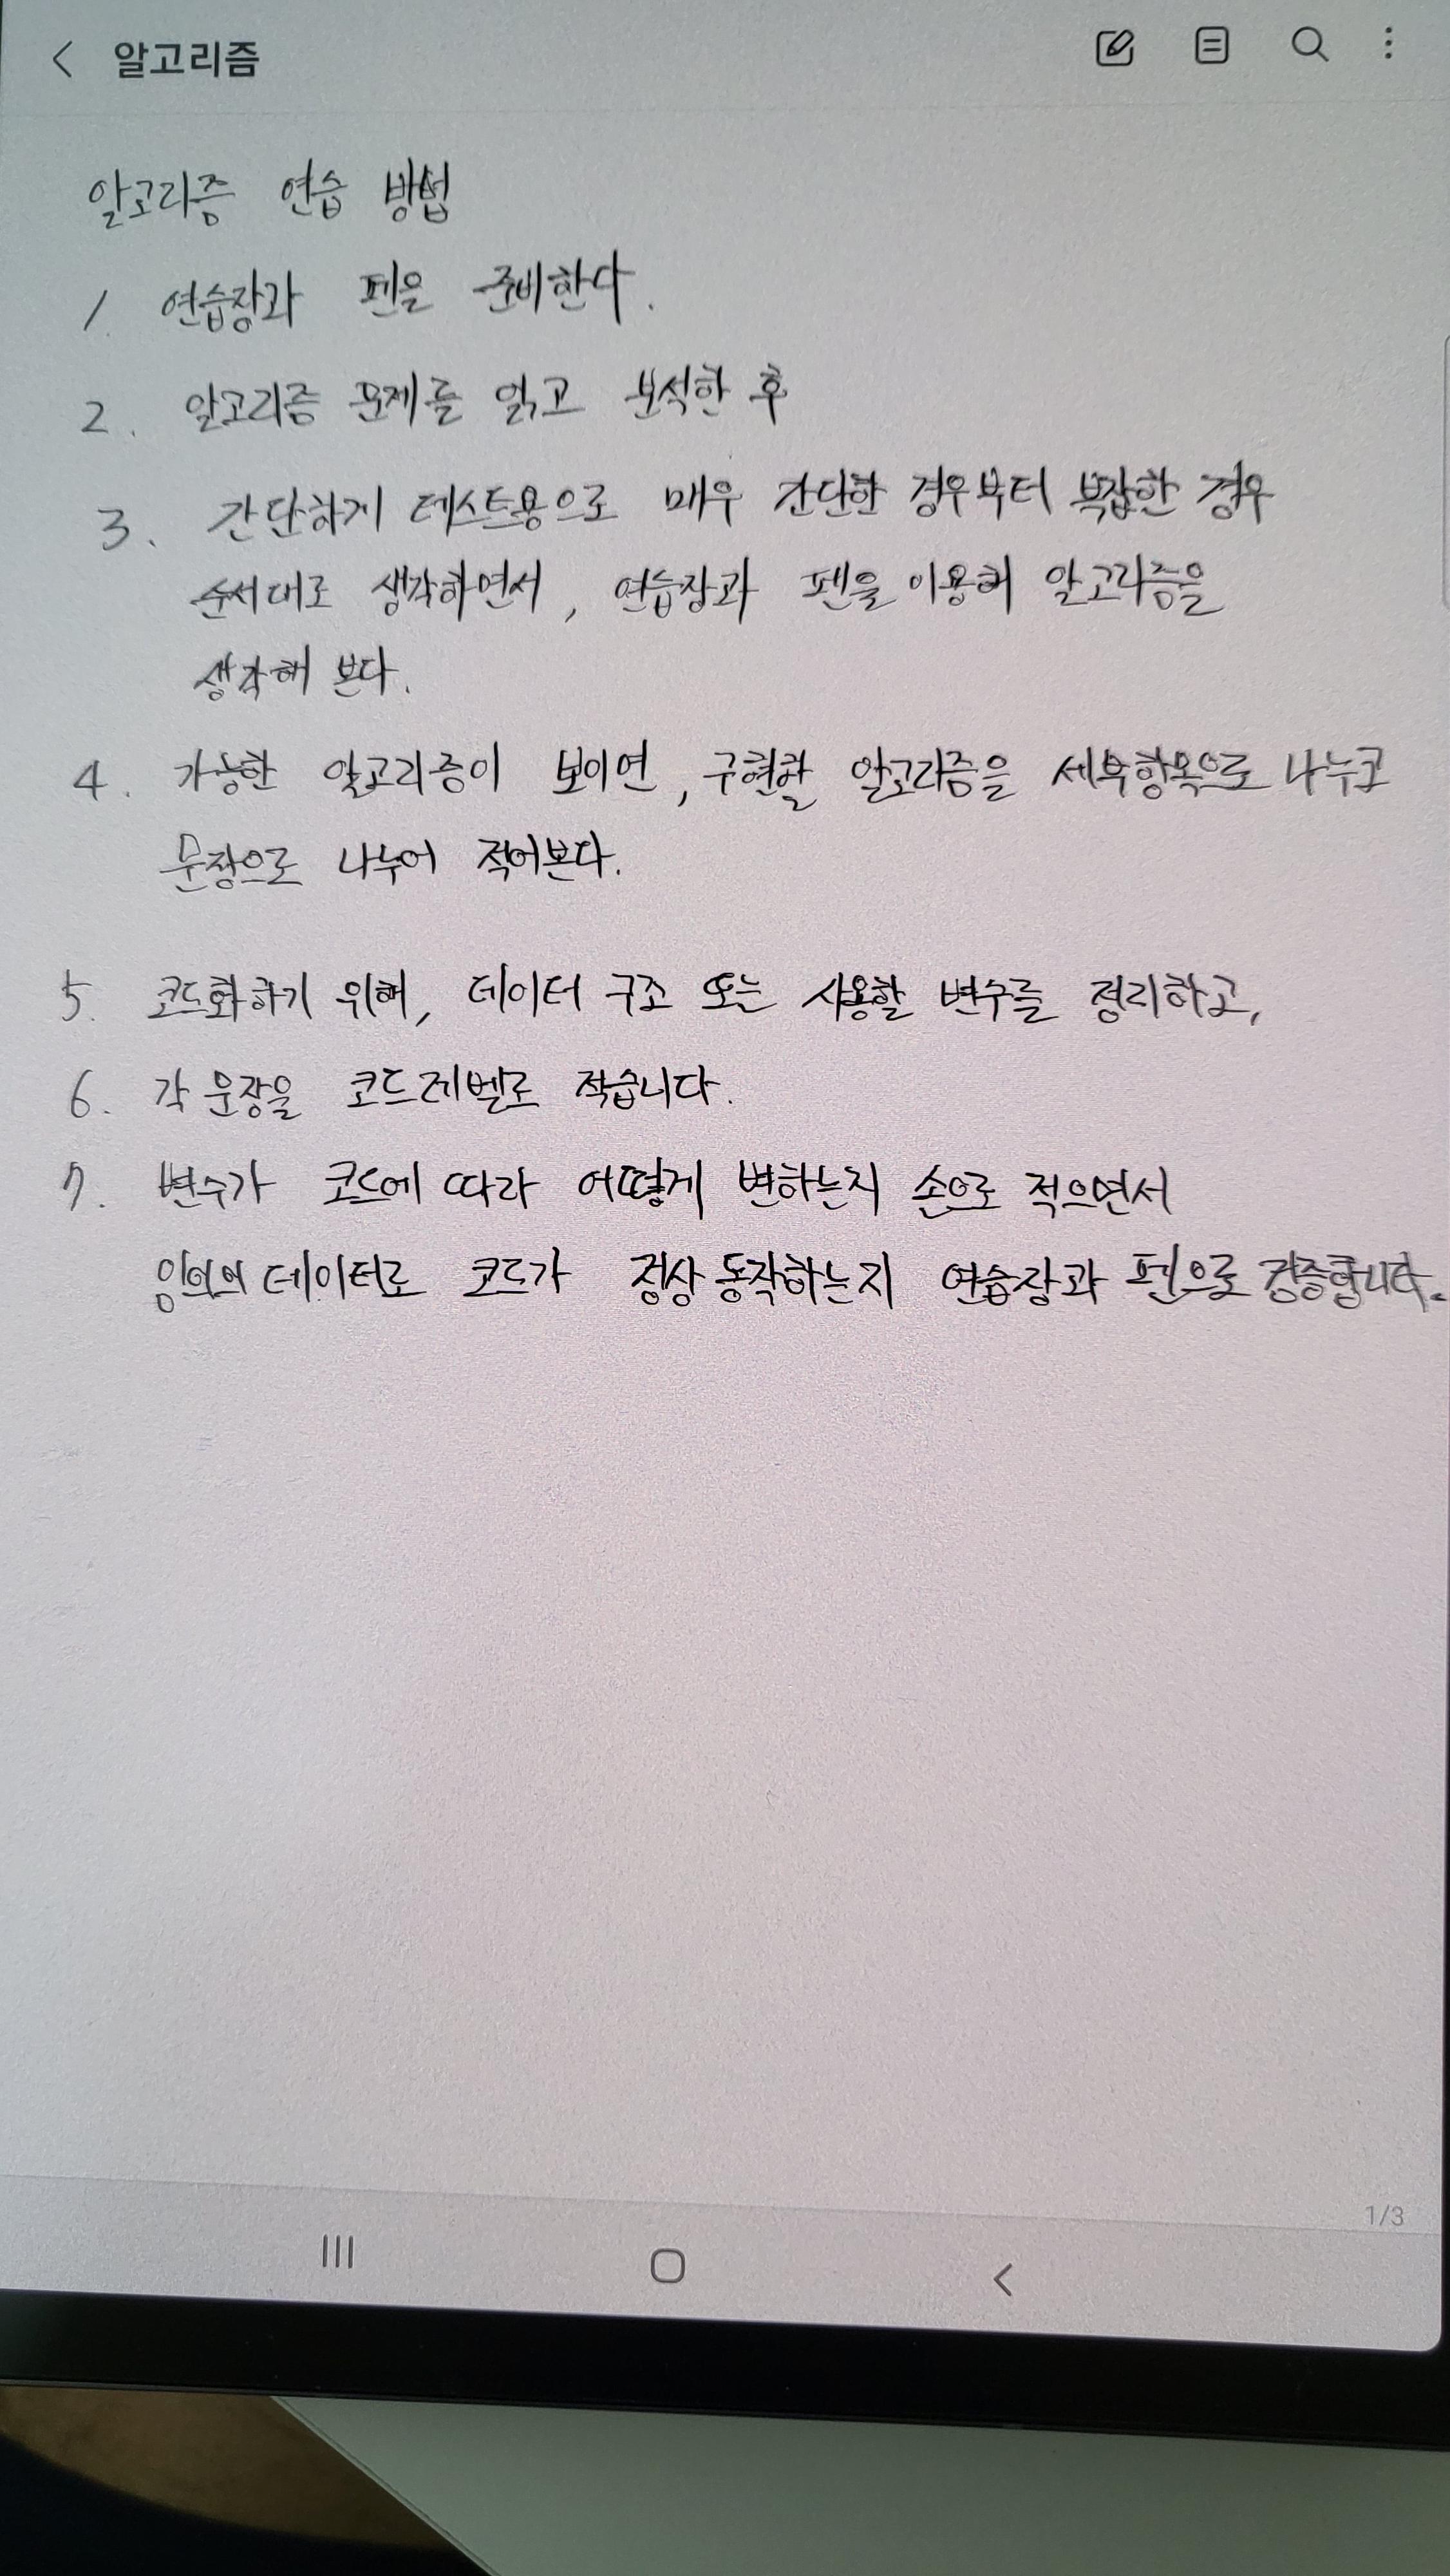 알고리즘
알고리즘 연습 방법
1. 연습장과 펜을 준비한다.
2. 알고리즘 문제를 읽고 분석한 후
3. 간단하게 테스트용으로 매우 간단한 경우부터 복잡한 경우
순서대로 생각하면서, 연습장과 펜을 이용해 알고리즘을
생각해 본다.
4. 가능한 알고리즘이 보이면, 구현할 알고리즘을 세부항목으로 나누고
문장으로 나누어 적어본다.
5. 코드화하기 위해, 데이터 구조 또는 사용할 변수를 정리하고,
6. 각 문장을 코드레벨로 적습니다.
7. 변수가 코드에 따라 어떻게 변하는지 손으로 적으면서
임의의 데이터로 코드가 정상 동작하는지 연습장과 펜으로 검증합니다.
1/3